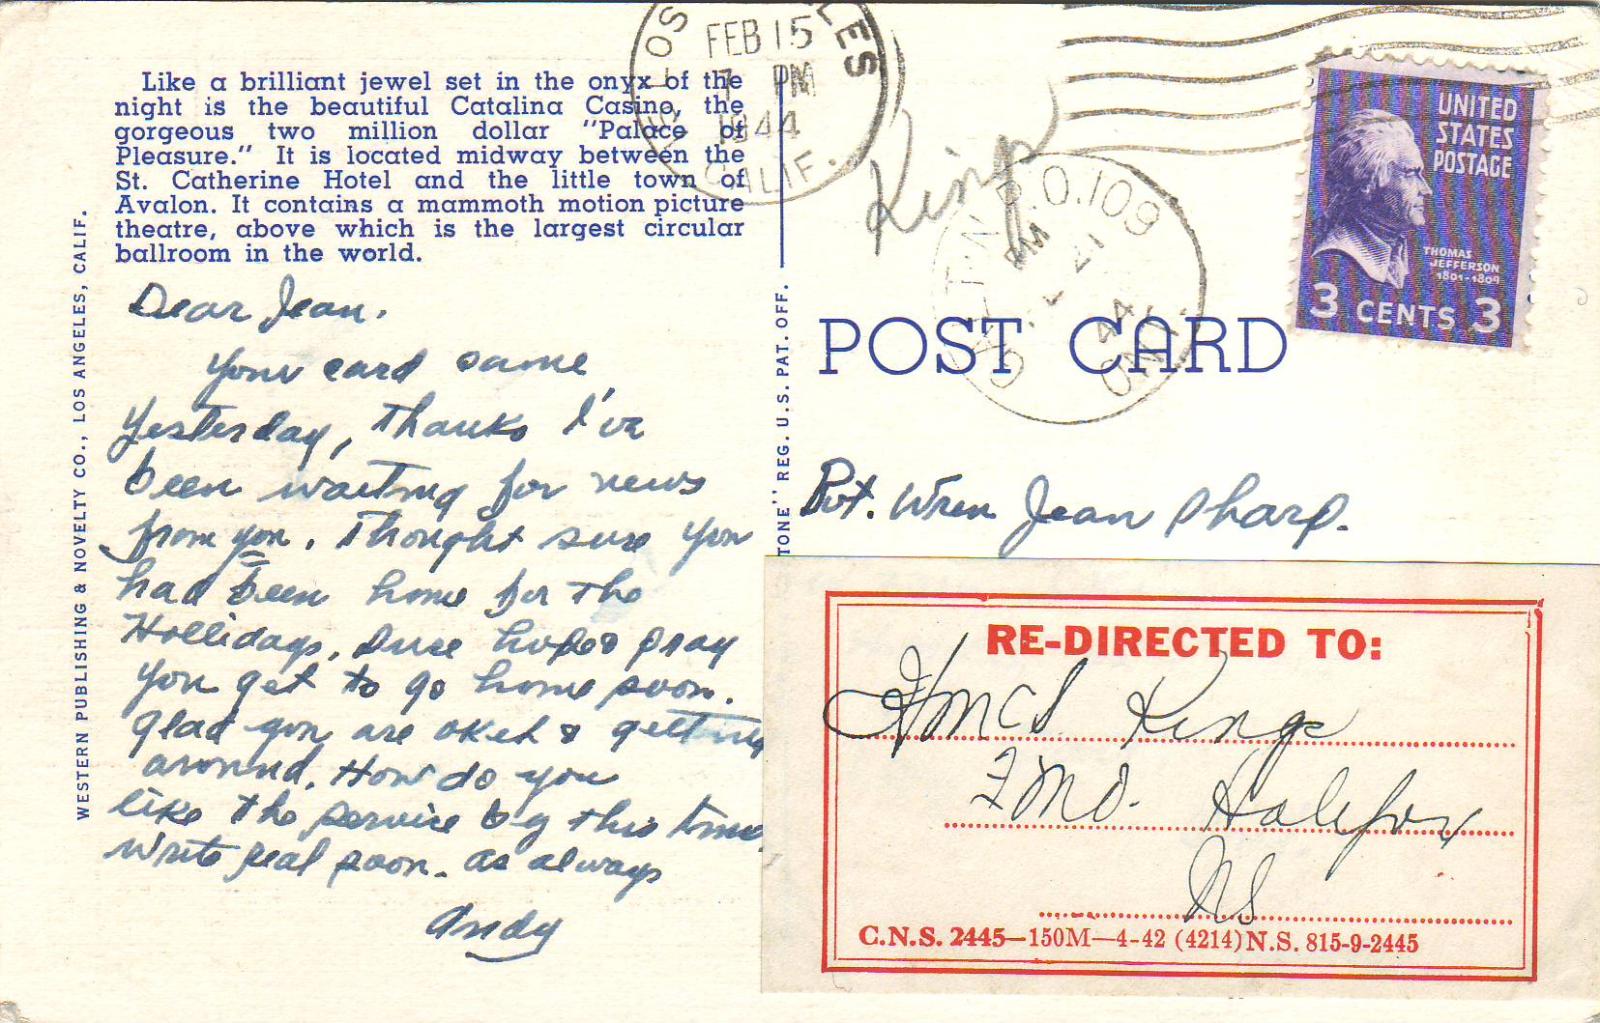 Like a brilliant jewel set in the onyx of the
night is the beautiful Catalina Casino, the
gorgeous two million dollar "Palace of
Pleasure." It is located midway between the
St. Catherine Hotel and the little town of
Avalon. It contains a mammoth motion picture
theatre, above which is the largest circular
ballroom in the world.
Dear Jean.
Your card came
Yesterday, Thanks I've
been waiting for news
from you. Thought sure you
had been home for the
Hollidays. Sure hope & pray
you get to go home soon.
Glad you are okeh & getting
around. How do you
like the service by this time.
Write real soon. as always
Andy
WESTERN PUBLISHING & NOVELTY CO., LOS ANGELES, CALIF.
TONE" REG. U.S. PAT. OFF.
LOS LES
FEB 15
7 PM
1944
CALIF.
King
N.P.O. 109
PM
21
44
ONT.
UNITED
STATES
POSTAGE
THOMAS
JEFFERSON
1801-1809
3 CENTS 3
POST CARD
Pvt. Wren Jean Sharp.
RE-DIRECTED TO:
HMCS Kings
FMO. Halifax
NS
C.N.S. 2445—150M—4-42 (4214) N.S. 815-9-2445